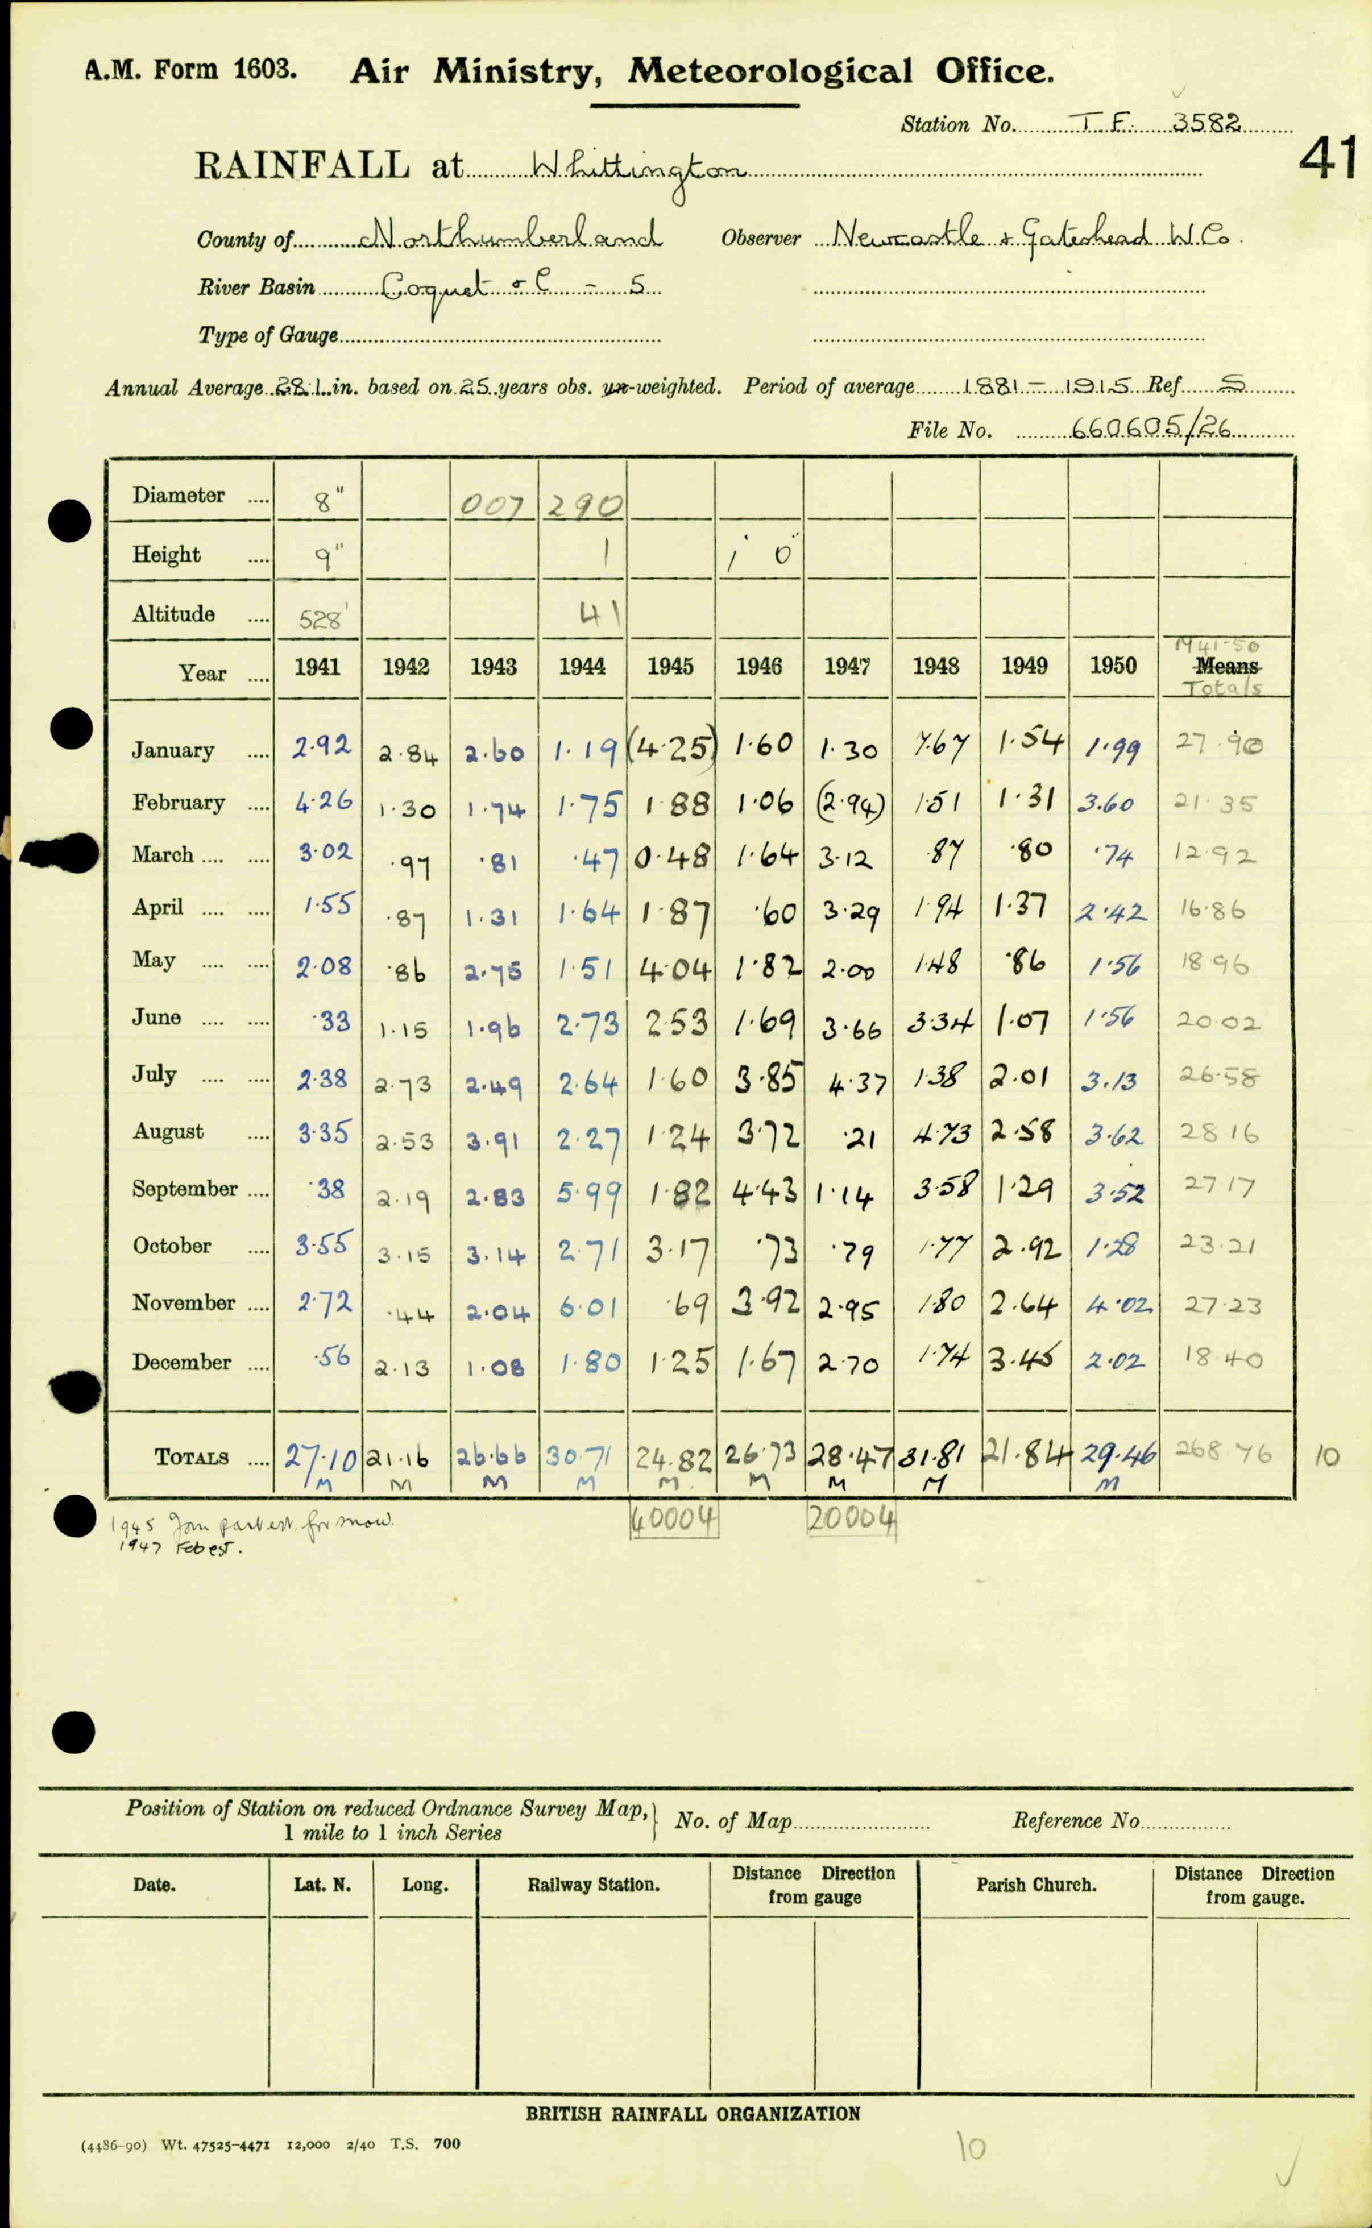 A.M. Form 1603. Air Ministry, Meteorological Office.
Station No. T.F. 3582
41
RAINFALL at Whittington
County of Northumberland Observer Newcastle & Gateshead W. Co.
River Basin Coquet & C - 5
Type of Gauge
Annual Average 28.1 in. based on 25 years obs. un-weighted. Period of average 1881 - 1915 Ref. S
File No. 660605/26
Diameter .... 8" 007 290
Height .... 9" 1 1' 0"
Altitude .... 528' 41
M 41-50
Year .... 1941 1942 1943 1944 1945 1946 1947 1948 1949 1950 Means
Totals
January .... 2.92 2.84 2.60 1.19 (4.25) 1.60 1.30 7.67 1.54 1.99 27.90
February .... 4.26 1.30 1.74 1.75 1.88 1.06 (2.94) 1.51 1.31 3.60 21.35
March .... .... 3.02 .97 .81 .47 0.48 1.64 3.12 .87 .80 .74 12.92
April .... .... 1.55 .87 1.31 1.64 1.87 .60 3.29 1.94 1.37 2.42 16.86
May .... .... 2.08 .86 2.75 1.51 4.04 1.82 2.00 1.48 .86 1.56 18.96
June .... .... .33 1.15 1.96 2.73 2.53 1.69 3.66 3.34 1.07 1.56 20.02
July .... .... 2.38 2.73 2.49 2.64 1.60 3.85 4.37 1.38 2.01 3.13 26.58
August .... 3.35 2.53 3.91 2.27 1.24 3.72 .21 4.73 2.58 3.62 28.16
September .... .38 2.19 2.83 5.99 1.82 4.43 1.14 3.58 1.29 3.52 27.17
October .... 3.55 3.15 3.14 2.71 3.17 .73 .79 1.77 2.92 1.28 23.21
November .... 2.72 .44 2.04 6.01 .69 3.92 2.95 1.80 2.64 4.02 27.23
December .... .56 2.13 1.08 1.80 1.25 1.67 2.70 1.74 3.45 2.02 18.40
TOTALS .... 27.10 21.16 26.66 30.71 24.82 26.73 28.47 31.81 21.84 29.46 268.76 10
M M M M M. M M M M
40004 20004
1945 Jan part est. for snow.
1947 Feb est.
Position of Station on reduced Ordnance Survey Map, } No. of Map Reference No.
1 mile to 1 inch Series
Date. Lat. N. Long. Railway Station. Distance Direction from gauge Parish Church. Distance Direction from gauge.
BRITISH RAINFALL ORGANIZATION
(4486-90) Wt. 47525-4471 12,000 2/40 T.S. 700
10